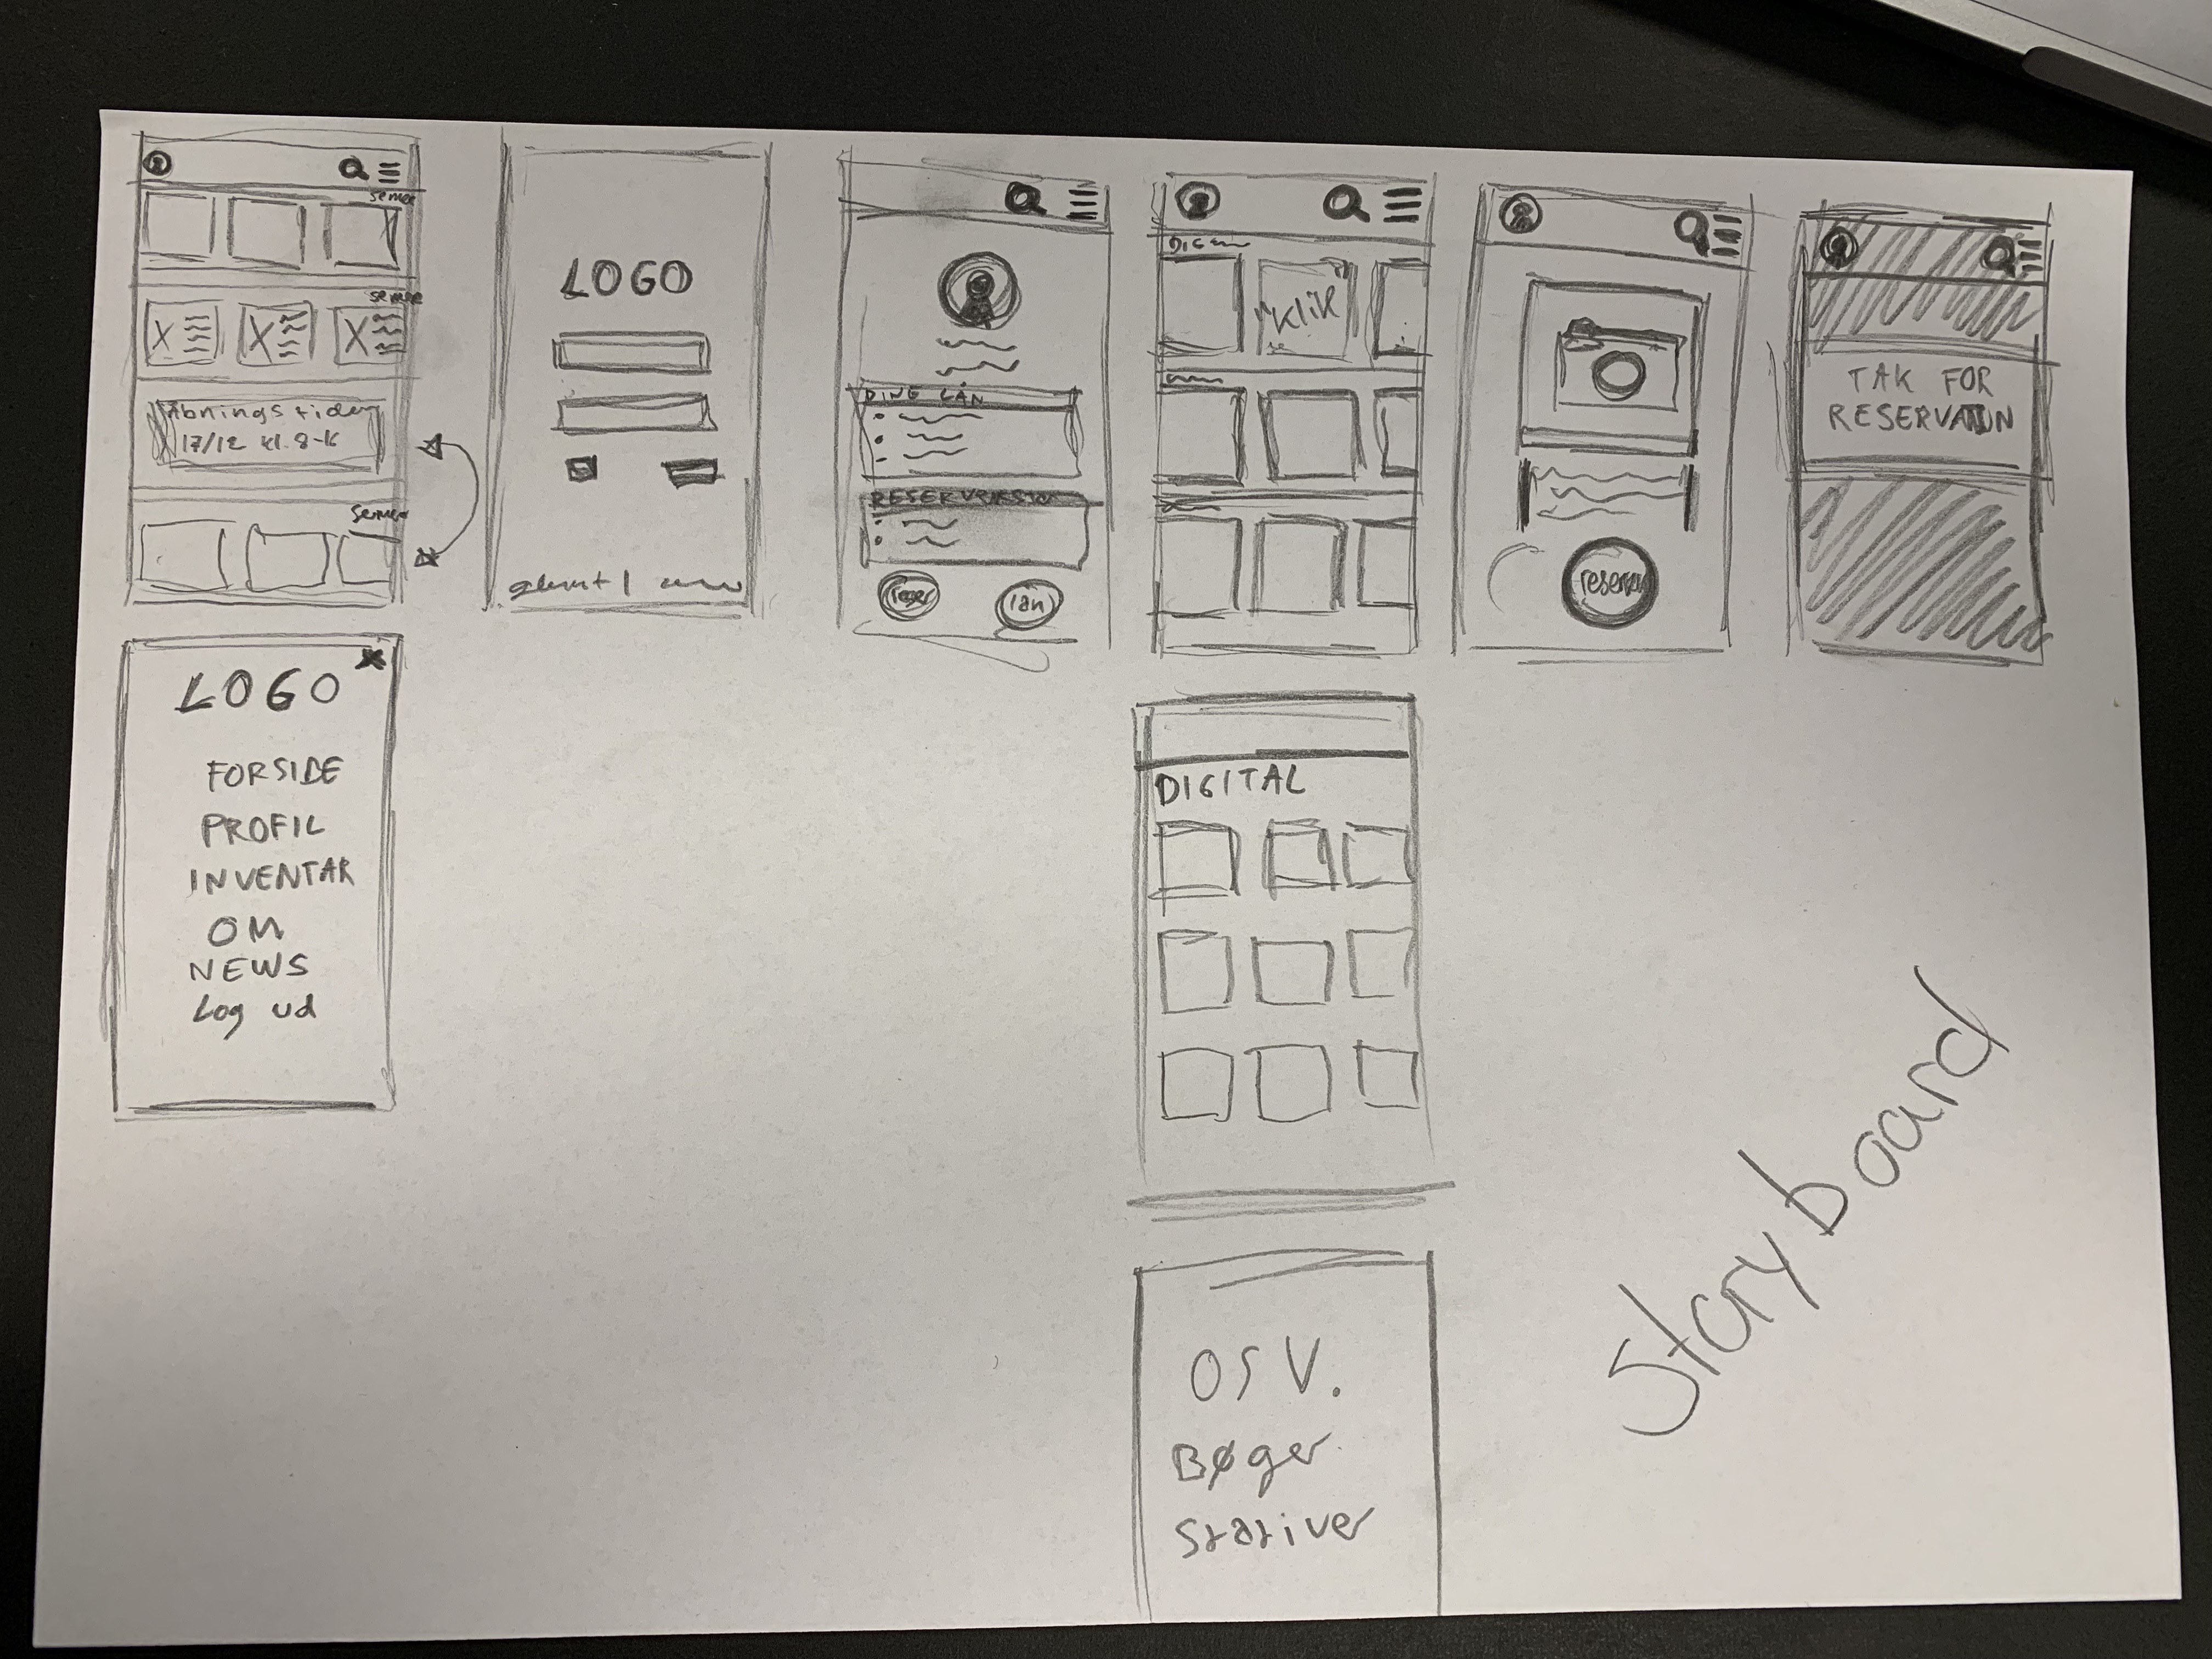 se mere
se mere
Åbningstider
17/12 kl. 8-16
se mere
LOGO
glemt |
DINE LÅN
RESERVATION
reser
lån
DIG
"Klik"
reserver
TAK FOR
RESERVATION
LOGO
X
FORSIDE
PROFIL
INVENTAR
OM
NEWS
Log ud
DIGITAL
OSV.
Bøger
Stativer
Storyboard